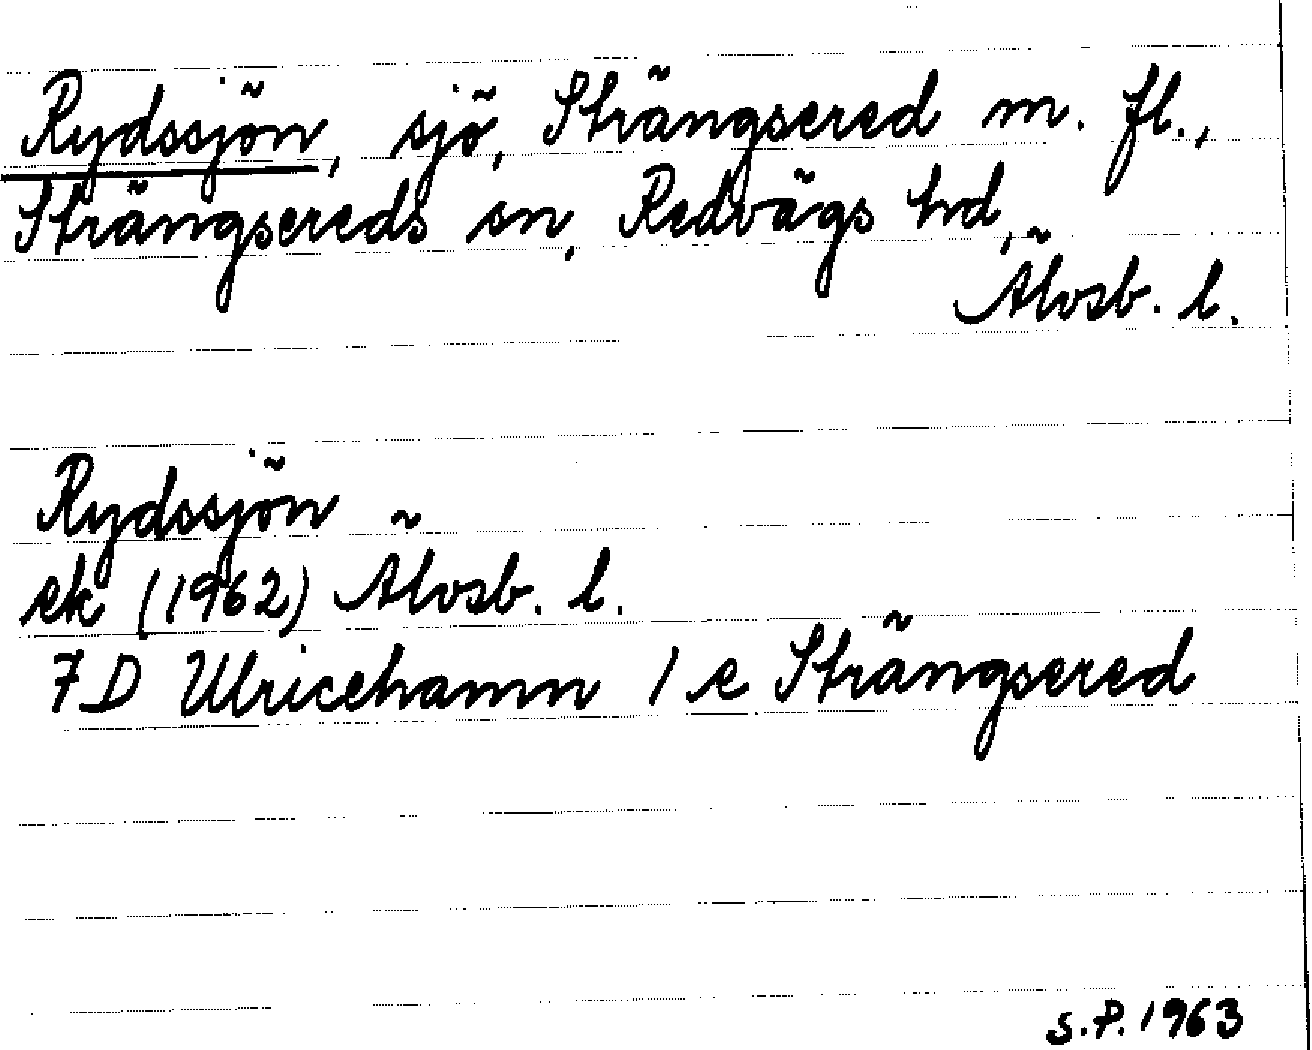 Rydssjön, sjö, Strängsered m. fl.,
Strängsereds sn, Redvägs hd,
Älvsb. l.
Rydssjön
ek (1962) Älvsb. l.
7D Ulricehamn 1 e Strängsered
S.P. 1963